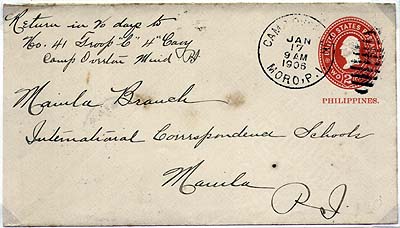 Return in 10 days to
No. 41 Troop "C" 4" Cavy
Camp Mind
CAMP
JAN
17
9 AM
1906
MORO, P.I.
UNITED STATES
2
TWO
PHILIPPINES.
Manila Branch
International Correspondence Schools
Manila
P.I.